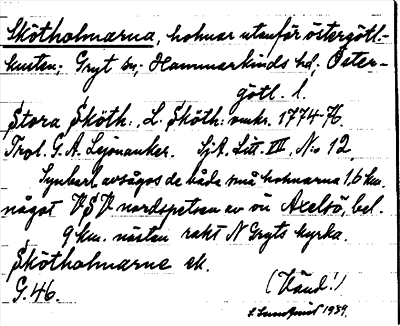 Skötholmarna, holmar utanför östergötl-
kusten; Gryt sn; Hammarkinds hd, Öster-
götl. l.
Stora Sköth:, L. Sköth: omkr. 1774-76.
Trol. G. A. Lejonanker. SjA. Litt. III, N:o 12
Synbarl. avsågos de båda små holmarna 1,6 km.
något VSV nordspetsen av ön Axelsö, bel.
9 km. nästan rakt N Gryts kyrka.
Skötholmarne ek.
G. 46.
(Vänd!)
1939.